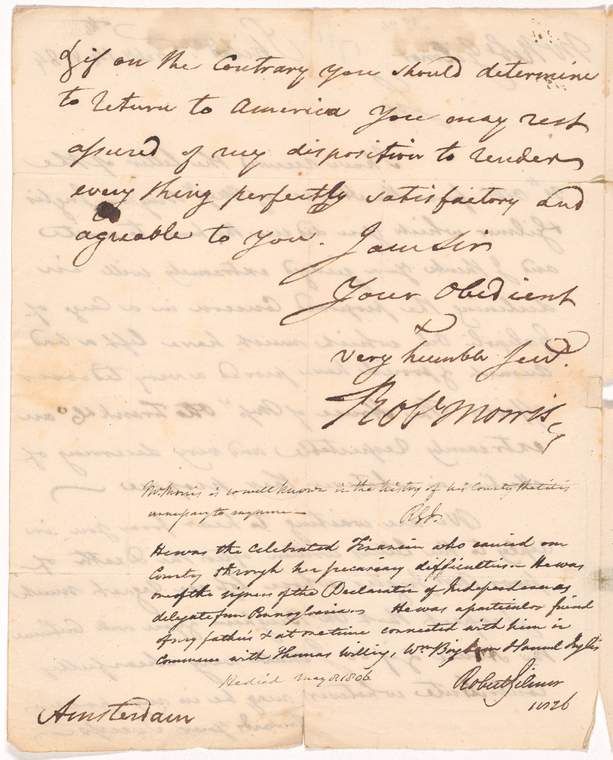 & if on the Contrary you should determine
to return to America you may rest
assured of my disposition to render
every thing perfectly satisfactory and
agreable to you. I am Sir
Your Obedient
&
very humble Servt.
Robt Morris
Mr Morris is so well known in the history of his Country that it is
unnecessary to say more—
He was the celebrated Financier who carried our
Country through her pecuniary difficulties. He was
one of the signers of the Declaration of Independence as
delegate from Pennsylvania. He was a particular friend
of my father's & at one time connected with him in
commerce with Thomas Willing, Wm Bingham & Samuel Inglis
He died May 8 1806
Robert Gilmor
Amsterdam